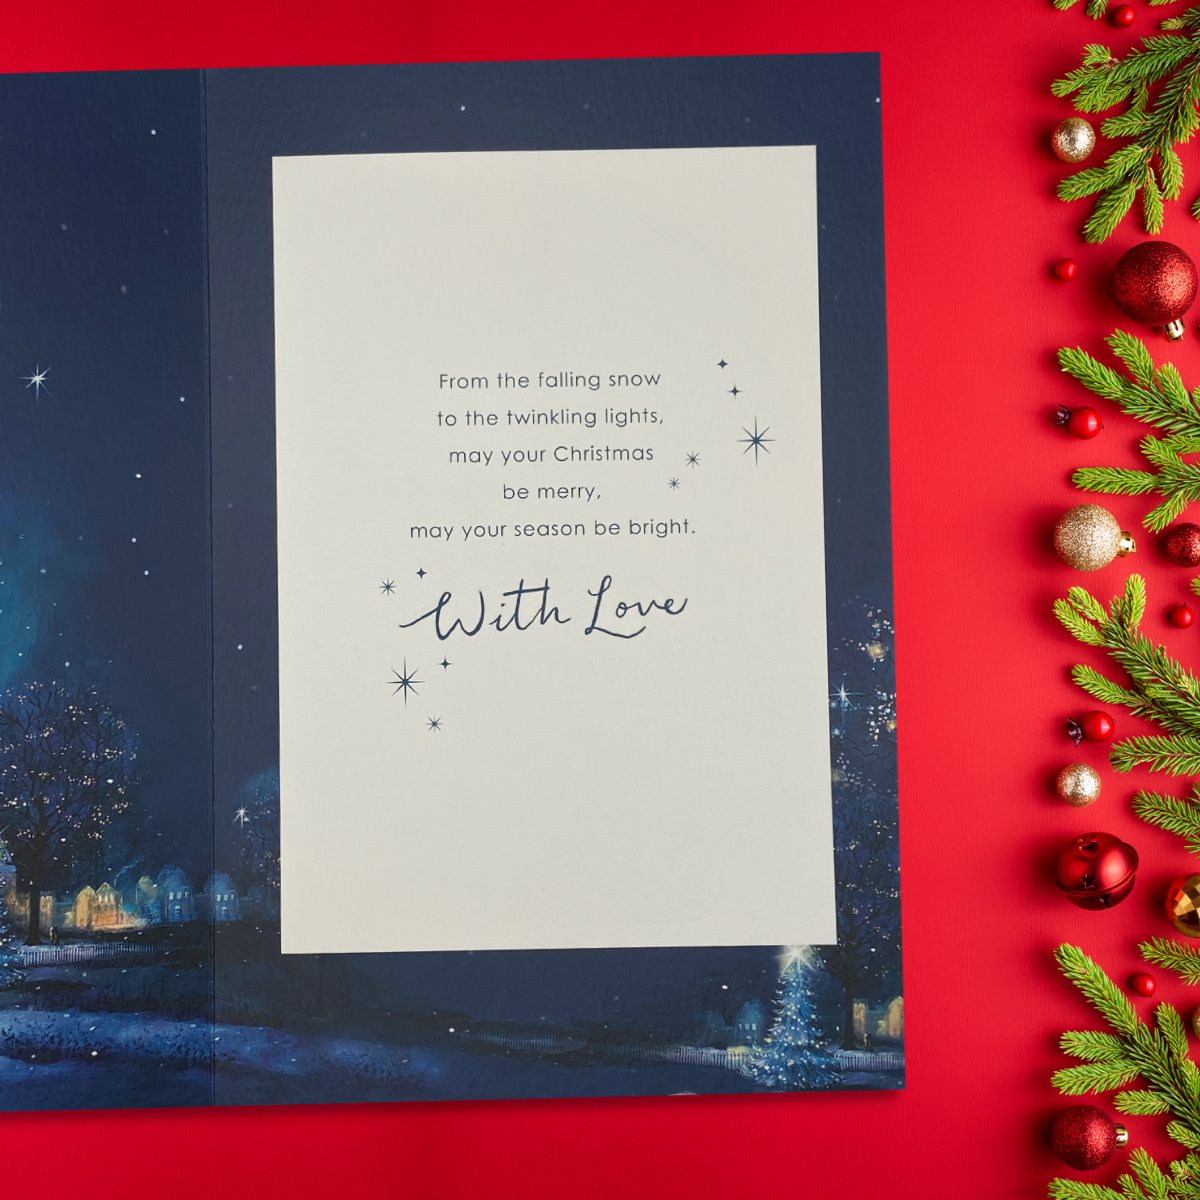 From the falling snow
to the twinkling lights,
may your Christmas
be merry,
may your season be bright.
With Love